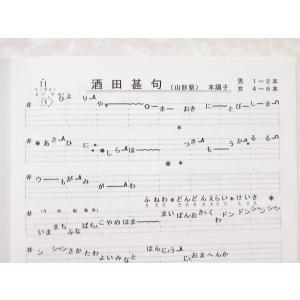 酒田甚句 (山形県) 本調子 男 1〜2本
女 4〜6本
1 ひ より や ま おき に とび しま
あさ に しらほ つき も うか る る
ウ もがみ が わ
ふねわ どんどん えらい けいき
いま まち ふな ばちょ こやのはま まい ばん おきゃく わ ドン ドン シャン シャン
シ シャン さかたわ よい みなと はん じょう じゃ おまへんか